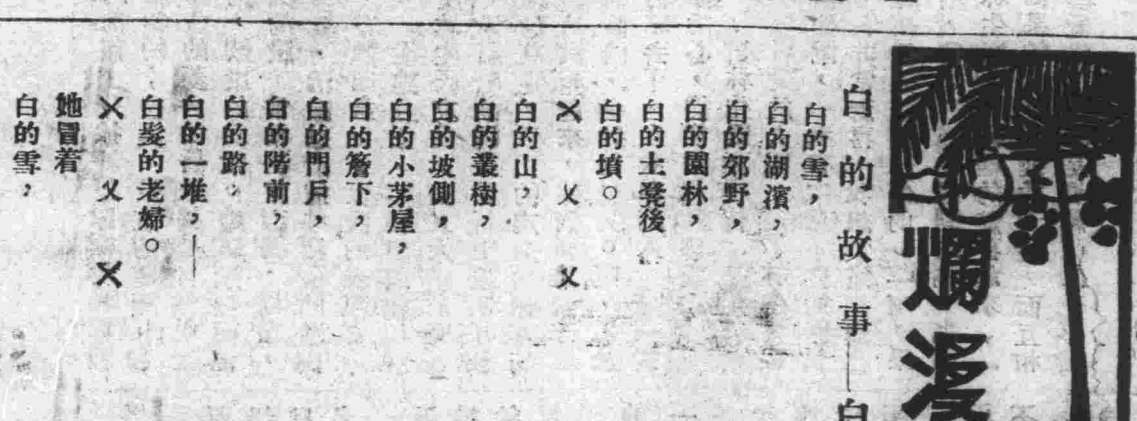 爛漫
白的故事——白
白的雪，
白的湖濱，
白的郊野，
白的園林，
白的土凳後
白的墳。
× × ×
白的山，
白的叢樹，
白的坡側，
白的小茅屋，
白的簷下，
白的門戶，
白的階前，
白的路，
白的一堆，——
白髮的老婦。
× × ×
她冒着
白的雪，